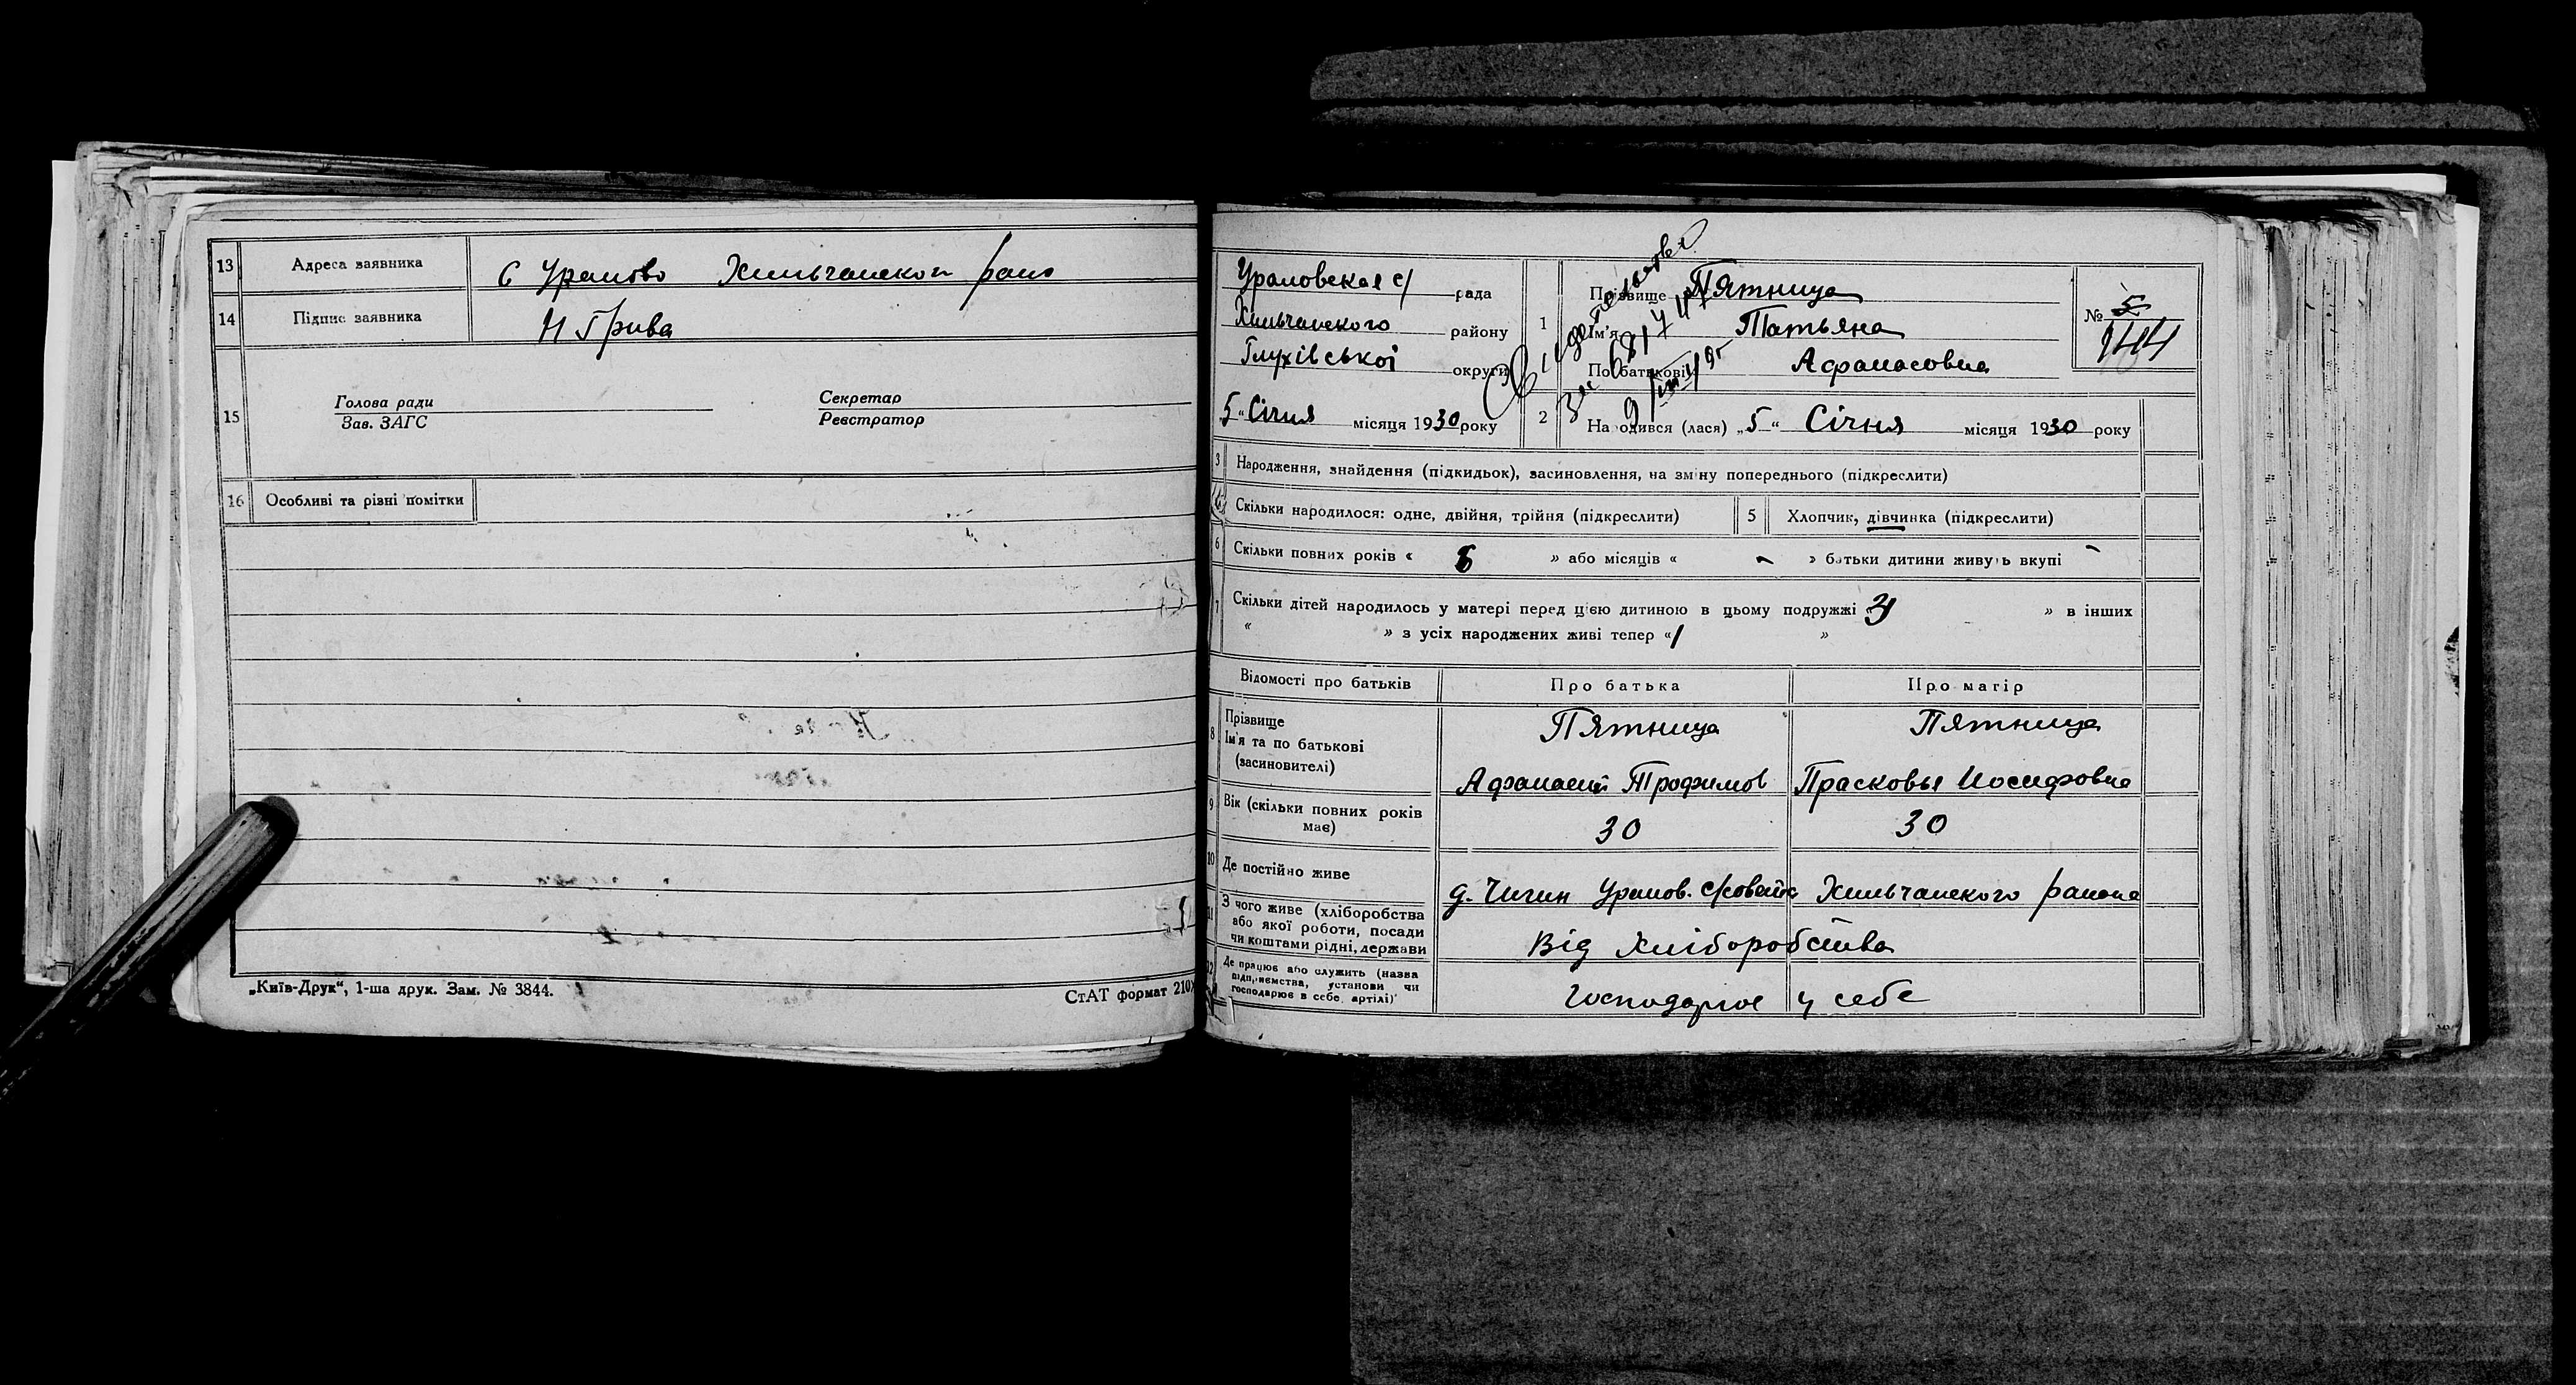 13 Адреса заявника С Ураново Хильчанского
14 Підпис заявника Н Грива
15 Голова ради Секретар
Зав. ЗАГС Реєстратор
16 Особливі та різні помітки
„Київ-Друк“, 1-ша друк. Зам. № 3844. СтАТ формат 210
Урановская с/ рада
Хильчанского району
Глухівської округи
5 „ Січня місяця 1930 року
1 Прізвище Пятница
Ім'я Татьяна
По батькові Афанасовна
№ 5
144
2 Народився (лася) „5“ Січня місяця 1930 року
3 Народження, знайдення (підкидьок), засиновлення, на зміну попереднього (підкреслити)
4 Скільки народилося: одне, двійня, трійня (підкреслити) 5 Хлопчик, дівчинка (підкреслити)
6 Скільки повних років « 8 » або місяців « - » батьки дитини живуть вкупі -
7 Скільки дітей народилось у матері перед цією дитиною в цьому подружжі « » в інших
« » з усіх народжених живі тепер «1 »
Відомості про батьків Про батька Про матір
8 Прізвище Пятница Пятница
Ім'я та по батькові
(засиновителі) Афанасий Трофимов Прасковья Иосифовна
9 Вік (скільки повних років має) 30 30
10 Де постійно живе д. Чигин Уранов. с/совета Хильчанского района
11 З чого живе (хліборобства або якої роботи, посади чи коштами рідні, держави Від Хліборобства
12 Де працює або служить (назва підприємства, установи чи господарює в себе, артілі) Господарює у себе